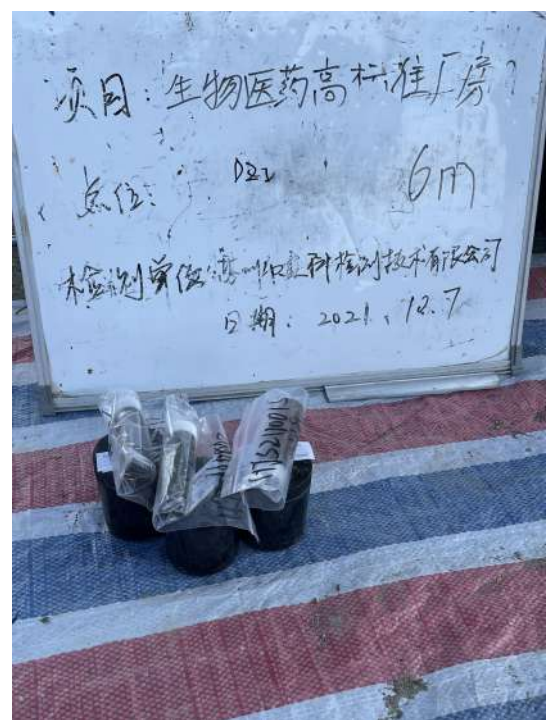 项目：生物医药高标准厂房
点位： DZ2 6m
检测单位：苏州 科检测技术有限公司
日期：2021.12.7